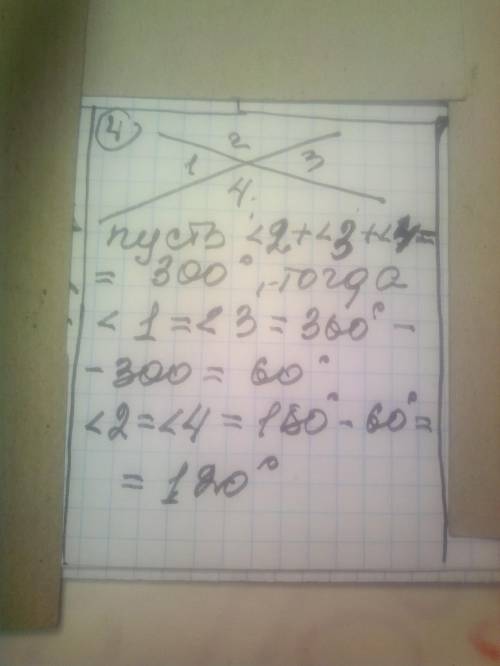 4
2
1 3
4
пусть <2+<3+<4=
= 300°, тогда
<1=<3=360°-
-300=60°
<2=<4=180°-60°=
=120°